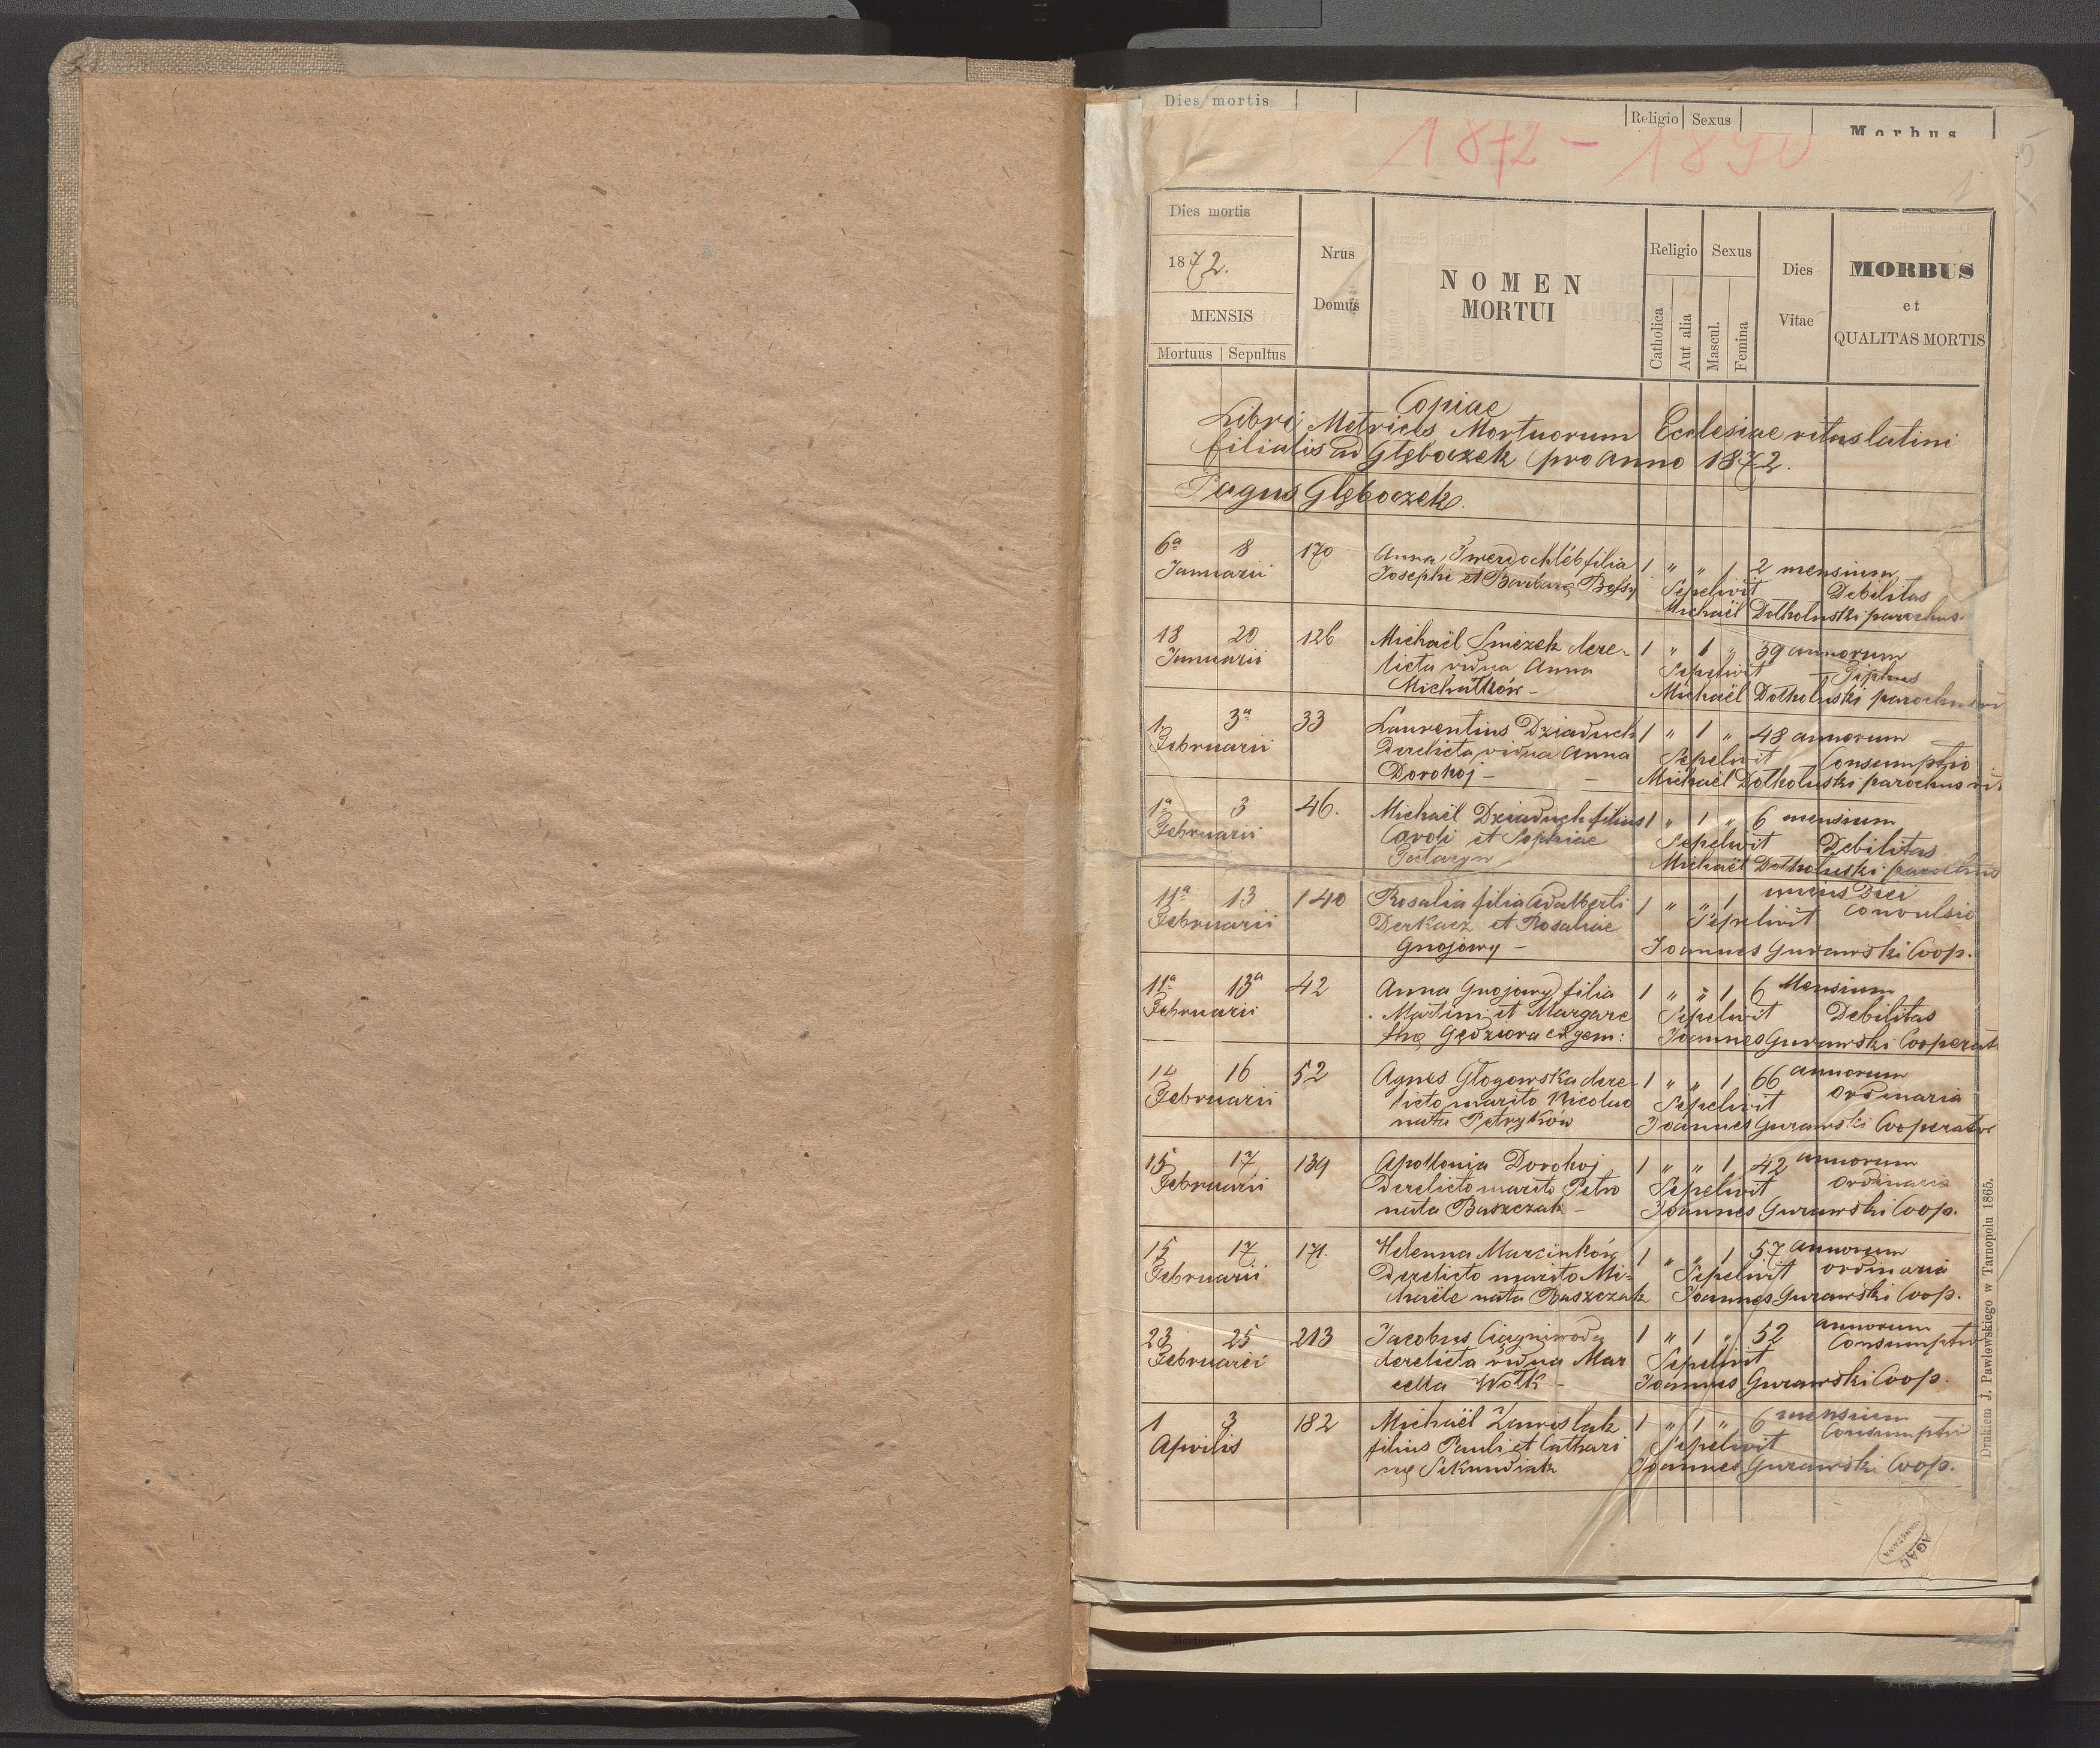 Dies mortis
Religio Sexus
Morbus
1872 - 1890
Dies mortis
1872.
MENSIS
Mortuus Sepultus
Nrus
Domus
NOMEN
MORTUI
Religio Sexus
Catholica
Aut alia
Mascul.
Femina
Dies
Vitae
MORBUS
et
QUALITAS MORTIS
Copiae
Libri Metrices Mortuorum Ecclesiae ritus latini
filialis ad Głęboczek pro anno 1872.
Pagus Głęboczek.
6ª 8 170 Anna Twerdochléb filia 1 " " 1 2 mensium
Januarii Josephi et Barbarę Sepelivit Debilitas
Michaël Dołhołuski parochus
18 20 126 Michaël Smezek dere- 1 " 1 " 39 annorum
Januarii licta vidua Anna Sepelivit Tiphus
Michałków - Michaël Dołhołuski parochus
1 3ª 33 Laurentius Dziaduch 1 " 1 " 48 annorum
Februarii Derelicta vidua Anna Sepelivit Consumptio
Dorohoj - Michaël Dołhołuski parochus
1ª 3 46. Michaël Dziaduch filius 1 " 1 " 6 mensium
Februarii Caroli et Sophiae Sepelivit Debilitas
Michaël Dołhołuski parochus
11ª 13 140 Rosalia filia Adalberti 1 " " 1 unius Diei
Februarii Derkacz et Rosaliae Sepelivit Convulsio
Gnojowy - Joannes Gurawski Coop.
11ª 13ª 42 Anna Gnojowy filia 1 " " 1 6 Mensium
Februarii Martini et Margare Sepelivit Debilitas
thę Gędziora exgem: Joannes Gurawski Cooperat
14 16 52 Agnes Głogowska dere- 1 " " 1 66 annorum
Februarii licto marito Nicolao Sepelivit ordinaria
nata Petryków Joannes Gurawski Cooperator
15 17 139 Apollonia Dorohoj 1 " " 1 42 annorum
Februarii Derelicto marito Petro Sepelivit ordinaria
nata Baszczak - Joannes Gurawski Coop.
15 17 171. Helenna Marcinków 1 " " 1 57 annorum
Februarii Derelicto marito Mi- Sepelivit ordinaria
chaële nata Baszczak Joannes Gurawski Coop.
23 25 213 Jacobus Ciągniwoda 1 " 1 " 52 annorum
Februarii derelicta vidua Mar Sepelivit Consumptio
cella Wołk - Joannes Gurawski Coop.
1 3 182 Michaël 1 " 1 " 6 mensium
Aprilis filius Pauli et Cathari Sepelivit Consumptio
nę Sekundiak Joannes Gurawski Coop.
Drukiem J. Pawłowskiego w Tarnopolu 1865.
AGAD
WARSZAWA
Mortuorum.